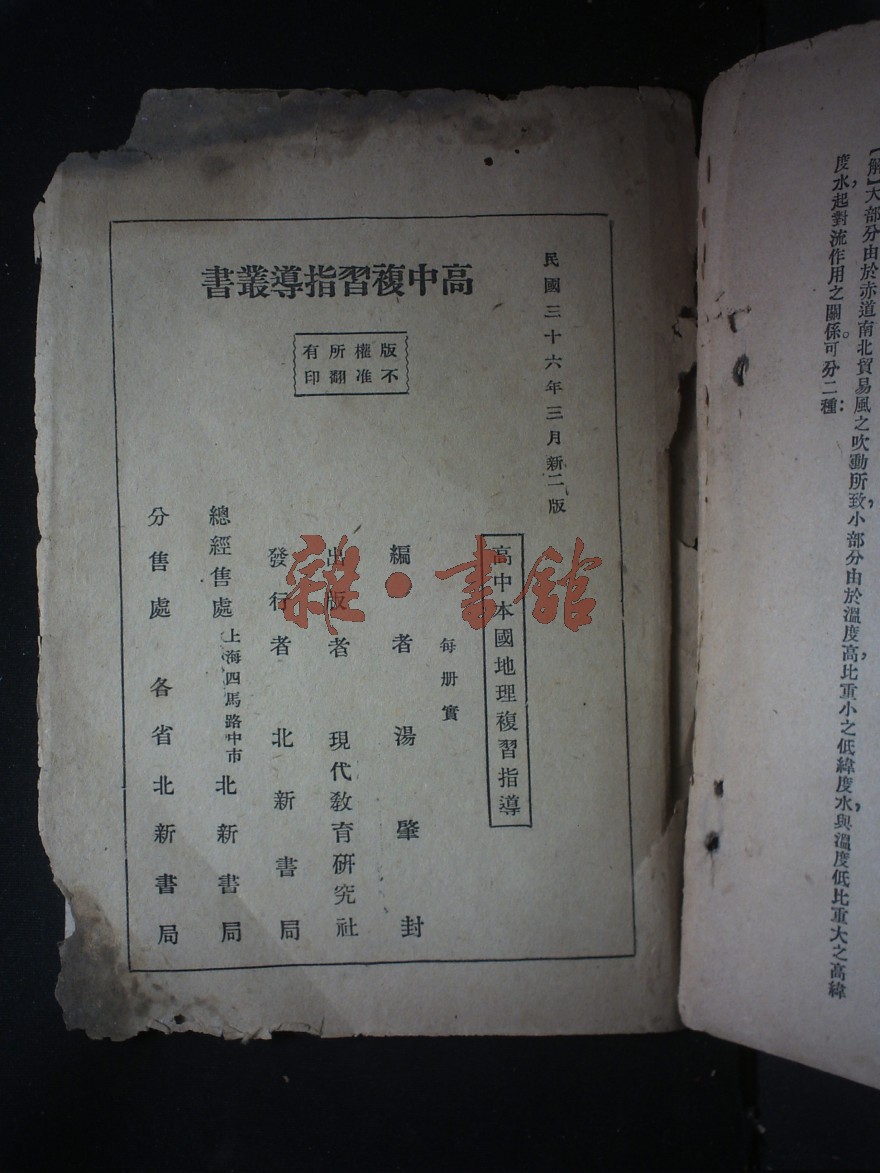 【解】大部分由於赤道南北貿易風之吹動所致，小部分由於溫度高，比重小之低緯度水，與溫度低比重大之高緯
度水，起對流作用之關係。可分二種：
高中複習指導叢書
版權所有
不准翻印
民國三十六年三月新二版
高中本國地理複習指導
每册實
編者 湯肇封
出版者 現代教育研究社
發行者 北新書局
總經售處 上海四馬路中市 北新書局
分售處 各省北新書局
雜·書館